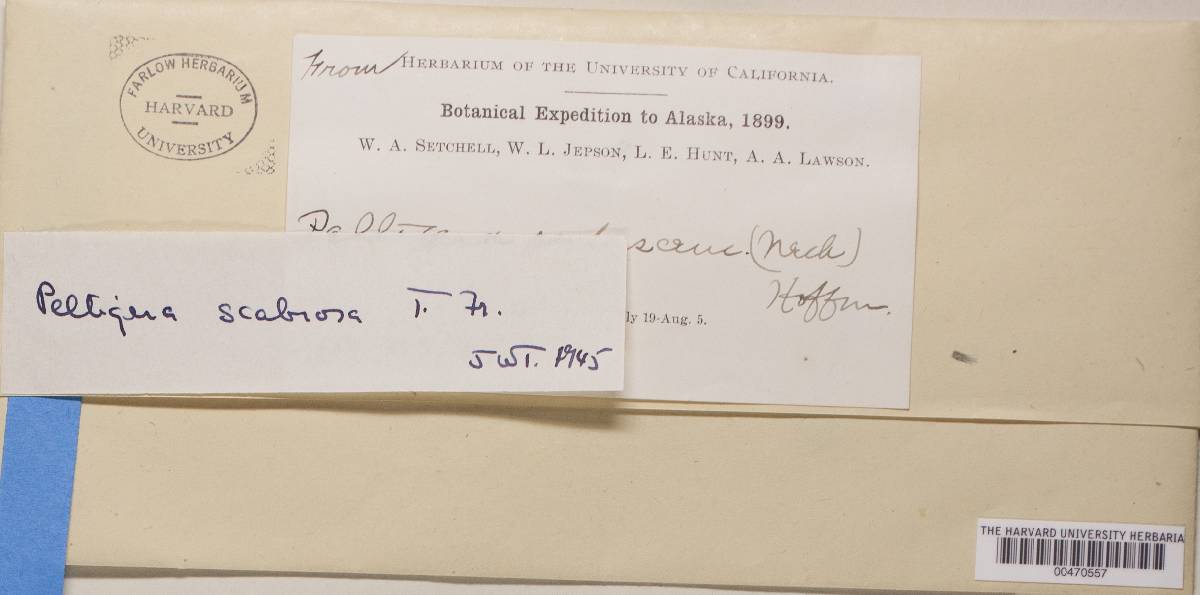 FARLOW HERBARIUM
HARVARD
UNIVERSITY
From HERBARIUM OF THE UNIVERSITY OF CALIFORNIA.
Botanical Expedition to Alaska, 1899.
W. A. SETCHELL, W. L. JEPSON, L. E. HUNT, A. A. LAWSON.
(Neck)
Hoffm.
ly 19-Aug. 5.
Peltigera scabrosa T. Fr.
JWT. 1945
THE HARVARD UNIVERSITY HERBARIA
00470557